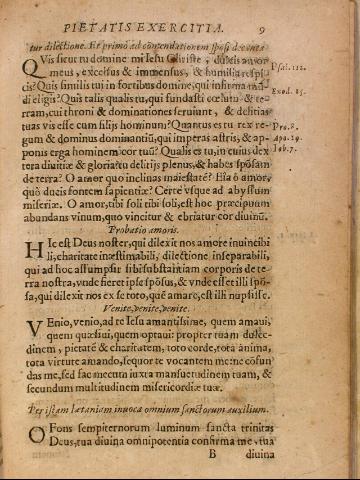 PIETATIS EXERCITIA. 9
tur dilectione. Et primo ad commendationem sposi decanta
QVis sicut tu domine mi Iesu Christe, dulcis amor
meus, excelsus & immensus, & humilia respi-
cis? Quis similis tui in fortibus domine, qui infirma mũ
di eligis? Quis talis qualis tu, qui fundasti cœlum & ter-
ram, cui throni & dominationes seruiunt, & delitias
tuas vis esse cum filijs hominum? Quantus es tu rex re-
gum & dominus dominantiũ, qui imperas astris, & ap-
ponis erga hominem cor tuũ? Qualis es tu, in cuius dex
tera diuitiæ & gloria: tu delitijs plenus, & habes spõsam
de terra? O amor quo inclinas maiestatẽ? Eia ô amor,
quò ducis fontem sapientiæ? Certe vsque ad abyssum
miseriæ. O amor, tibi soli tibi soli, est hoc præcipuum
abundans vinum, quo vincitur & ebriatur cor diuinũ.
Psal. 112.
Exod. 15.
Pro. 8.
Apo. 19.
Iob. 7.
Probatio amoris.
HIc est Deus noster, qui dilexit nos amore inuincibi
li, charitate inæstimabili, dilectione inseparabili,
qui ad hoc assumpsit sibi substantiam corporis de ter-
ra nostra, vnde fieret ipse spõsus, & vnde esset illi spõ-
sa, qui dilexit nos ex se toto, quẽ amare, est illi nupsisse.
Venite, venite, venite.
VEnio, venio, ad te Iesu amantissime, quem amaui,
quem quæsiui, quem optaui: propter tuam dulce-
dinem, pietatẽ & charitatem, toto corde, tota anima,
tota virtute amando, sequor te vocantem me: ne cõfun
das me, sed fac mecum iuxta mansuetudinem tuam, &
secundum multitudinem misericordiæ tuæ.
Per istam lætaniam inuoca omnium sanctorum auxilium.
O Fons sempiternorum luminum sancta trinitas
Deus, tua diuina omnipotentia confirma me, tua
B diuina